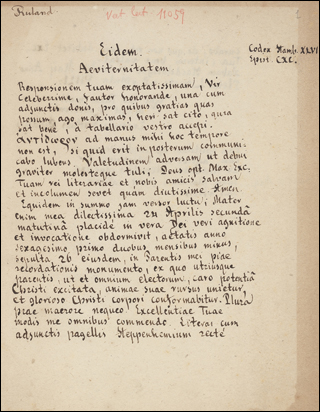 Ruland
Vat. lat. 11059
Eidem.
Codex Hamb. XXVI
Epist. CXC.
Aeviternitatem
Responsionem tuam exoptatissimam, Vir
Celeberrime, Fautor honorande, una cum
adjunctis donis, pro quibus gratias quas
possum ago maximas, heri sat cito, quia
sat bene, a tabellario vestro accepi.
ad manus mihi hoc tempore
non est, si quid erit in posterum communi-
cabo lubens. Valetudinem adversam ut debui
graviter molesteque tuli; Deus opt. Max. Exc.
Tuam rei literariae et nobis amicis salvam
et incolumem sovet quam diutissime. Amen
Equidem in summo jam versor luctu; Mater
enim mea dilectissima 24 Aprilis secundâ
matutinâ placide in vera Dei veri agnitione
et invocatione obdormivit, aetatis anno
sexagesimo primo duobus mensibus minus,
sepulta 26 ejusdem, in Parentis mei piae
recordationis monumento, ex quo utriusque
parentis, ut et omnium electorum, caro potentiâ
Christi excitata, animae suae rursus unietur,
et glorioso Christi corpori conformabitur. Plura
prae maerore nequeo. Excellentiae Tuae
modis me omnibus commendo. Literas cum
adjunctis pagellis Heppenhemium recte